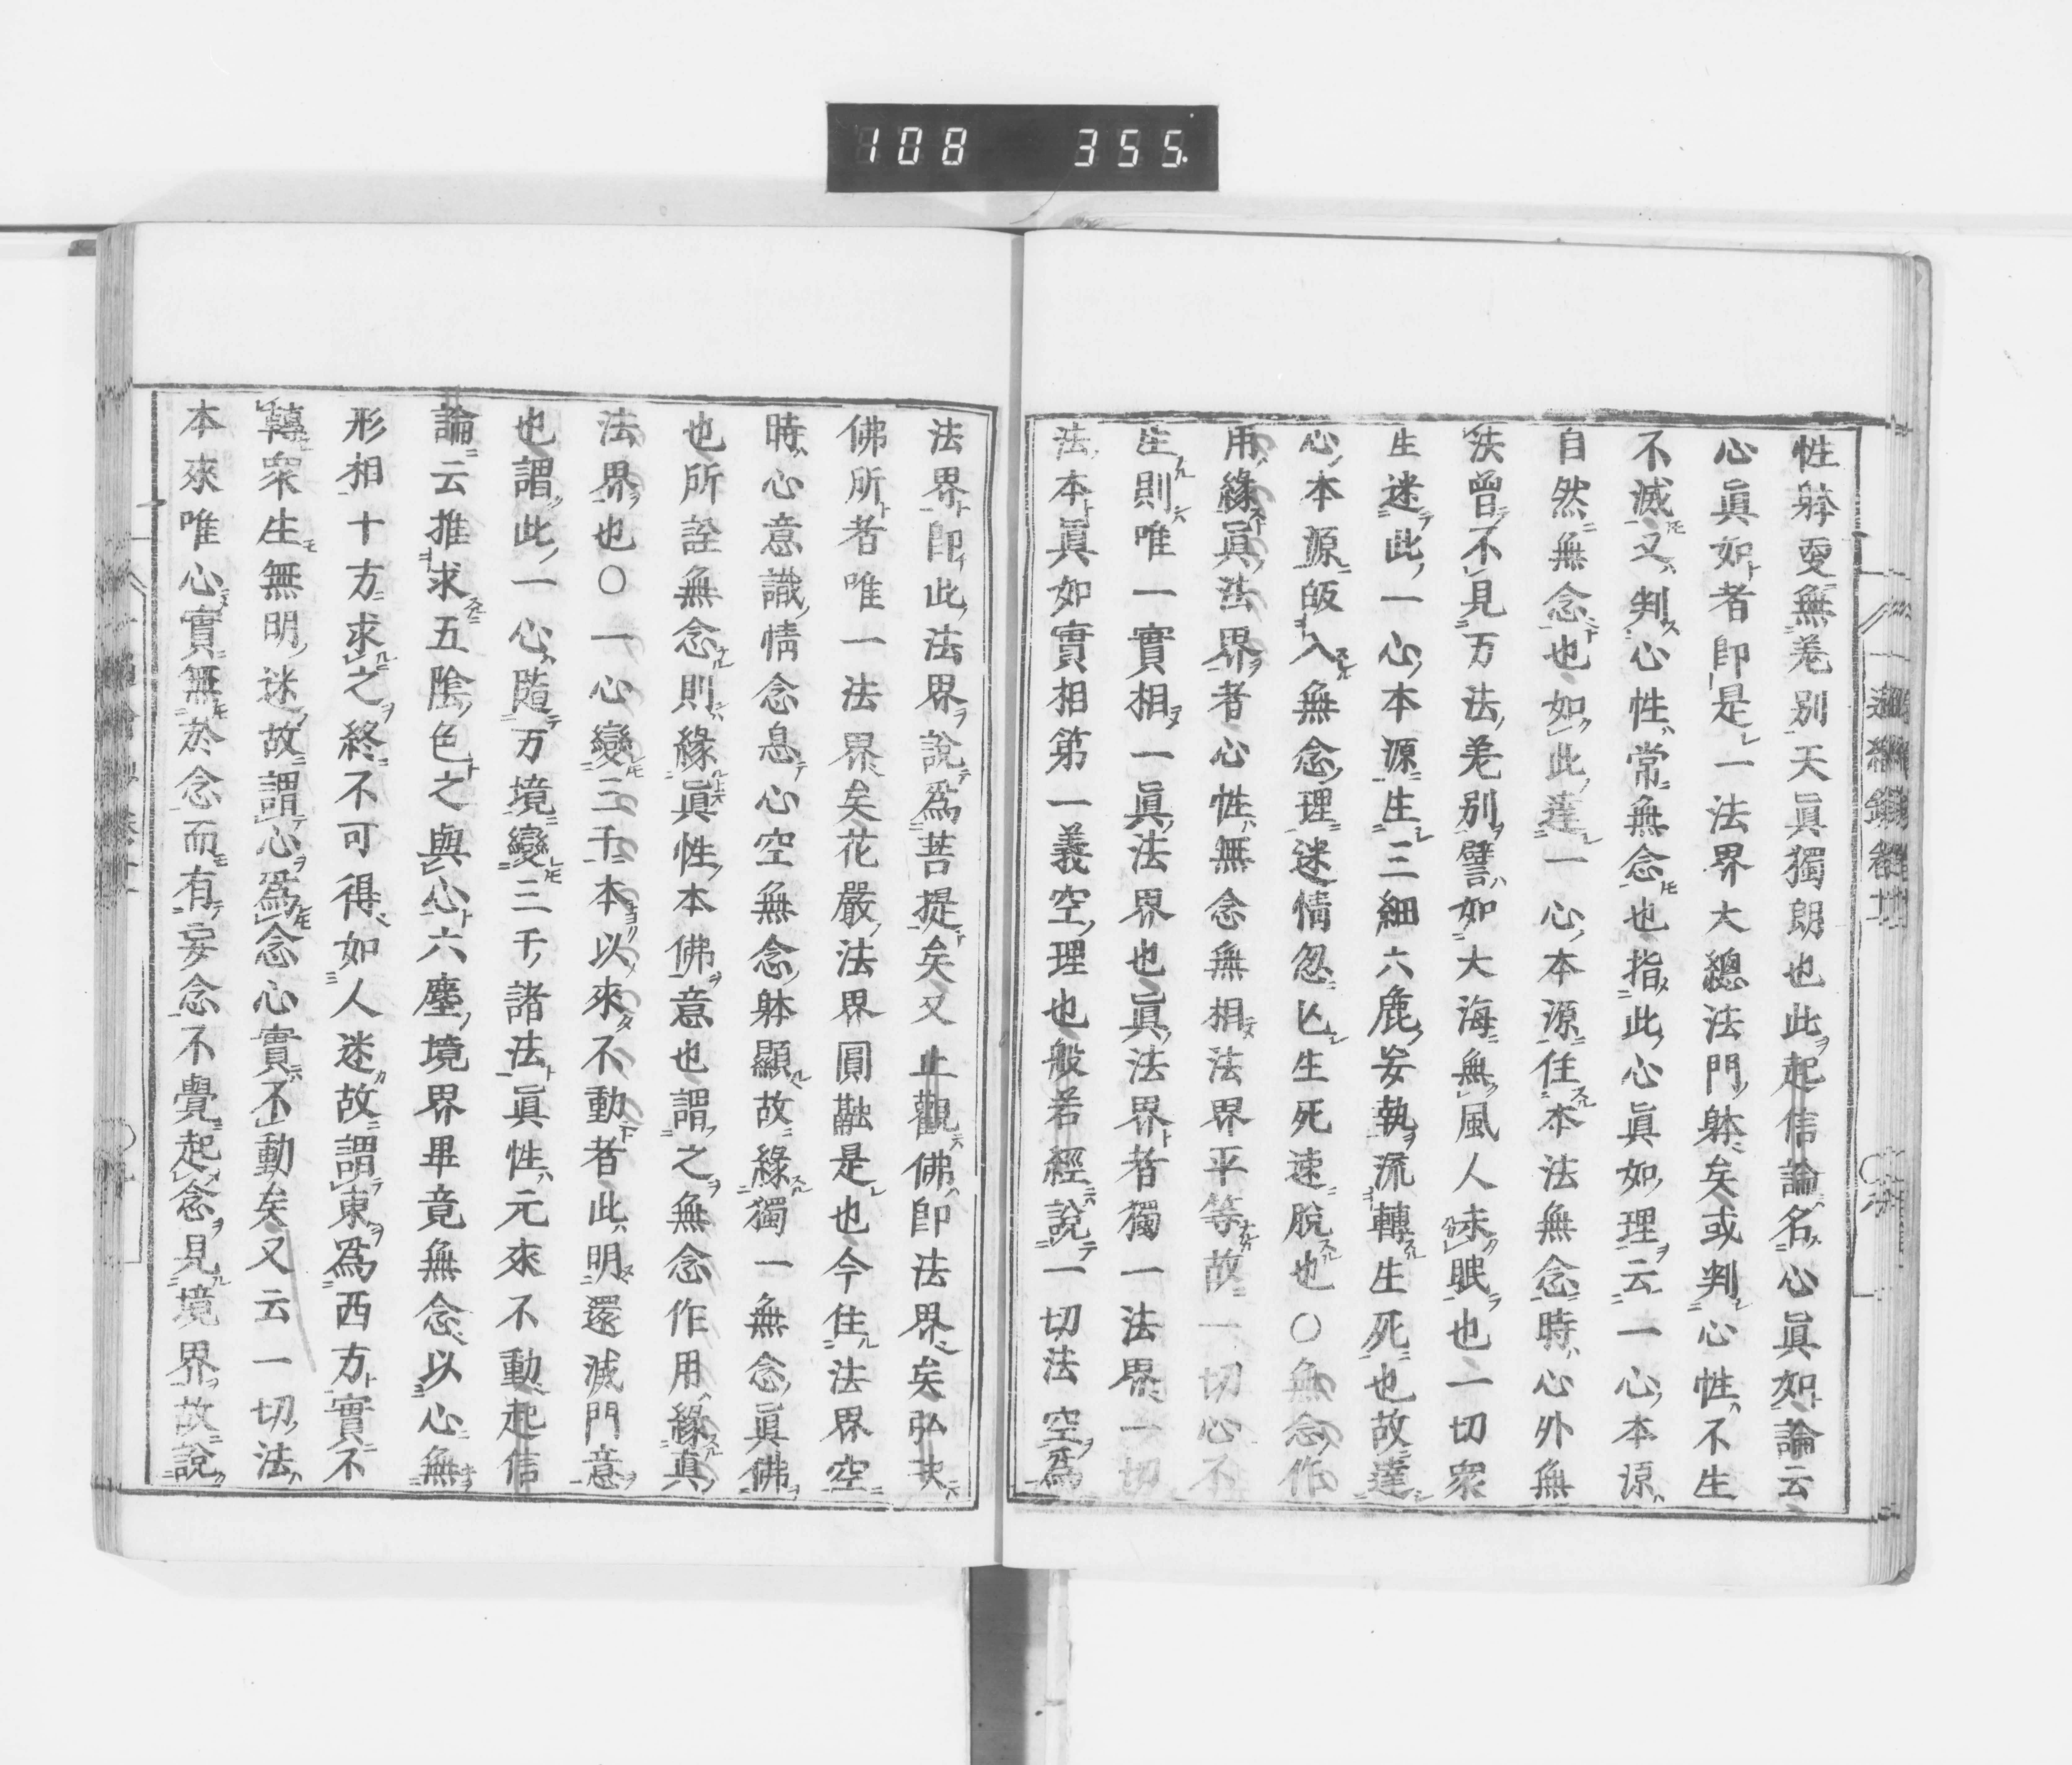 108 355
性躰更無差別天眞獨朗也此起信論名心眞如論云
心眞如者卽是一法界大總法門躰矣或判心性不生
不滅又判心性常無念也指此心眞如理云一心本源
自然無念也如此達一心本源住本法無念時心外無
法曾不見万法差別譬如大海無風人未眠也一切衆
生迷此一心本源生三細六麁妄執流轉生死也故達
心本源皈入無念理迷情忽亡生死速脫也○無念作
用緣眞法界者心性無念無相法界平等故一切心不
生則唯一實相一眞法界也眞法界者獨一法界一切
法本眞如實相第一義空理也般若經說一切法空爲
法界卽此法界說爲菩提矣又止觀佛卽法界矣弘決
佛所者唯一法界矣花嚴法界圓融是也今住法界空
時心意識情念息心空無念躰顯故緣獨一無念眞佛
也所詮無念則緣眞性本佛意也謂之無念作用緣眞
法界也○一心變三千本以來不動者此明還滅門意
也謂此一心隨万境變三千諸法眞性元來不動起信
論云推求五陰色之與心六塵境界畢竟無念以心無
形相十方求之終不可得如人迷故謂東爲西方實不
轉衆生無明迷故謂心爲念心實不動矣又云一切法
本來唯心實無於念而有妄念不覺起念見境界故說